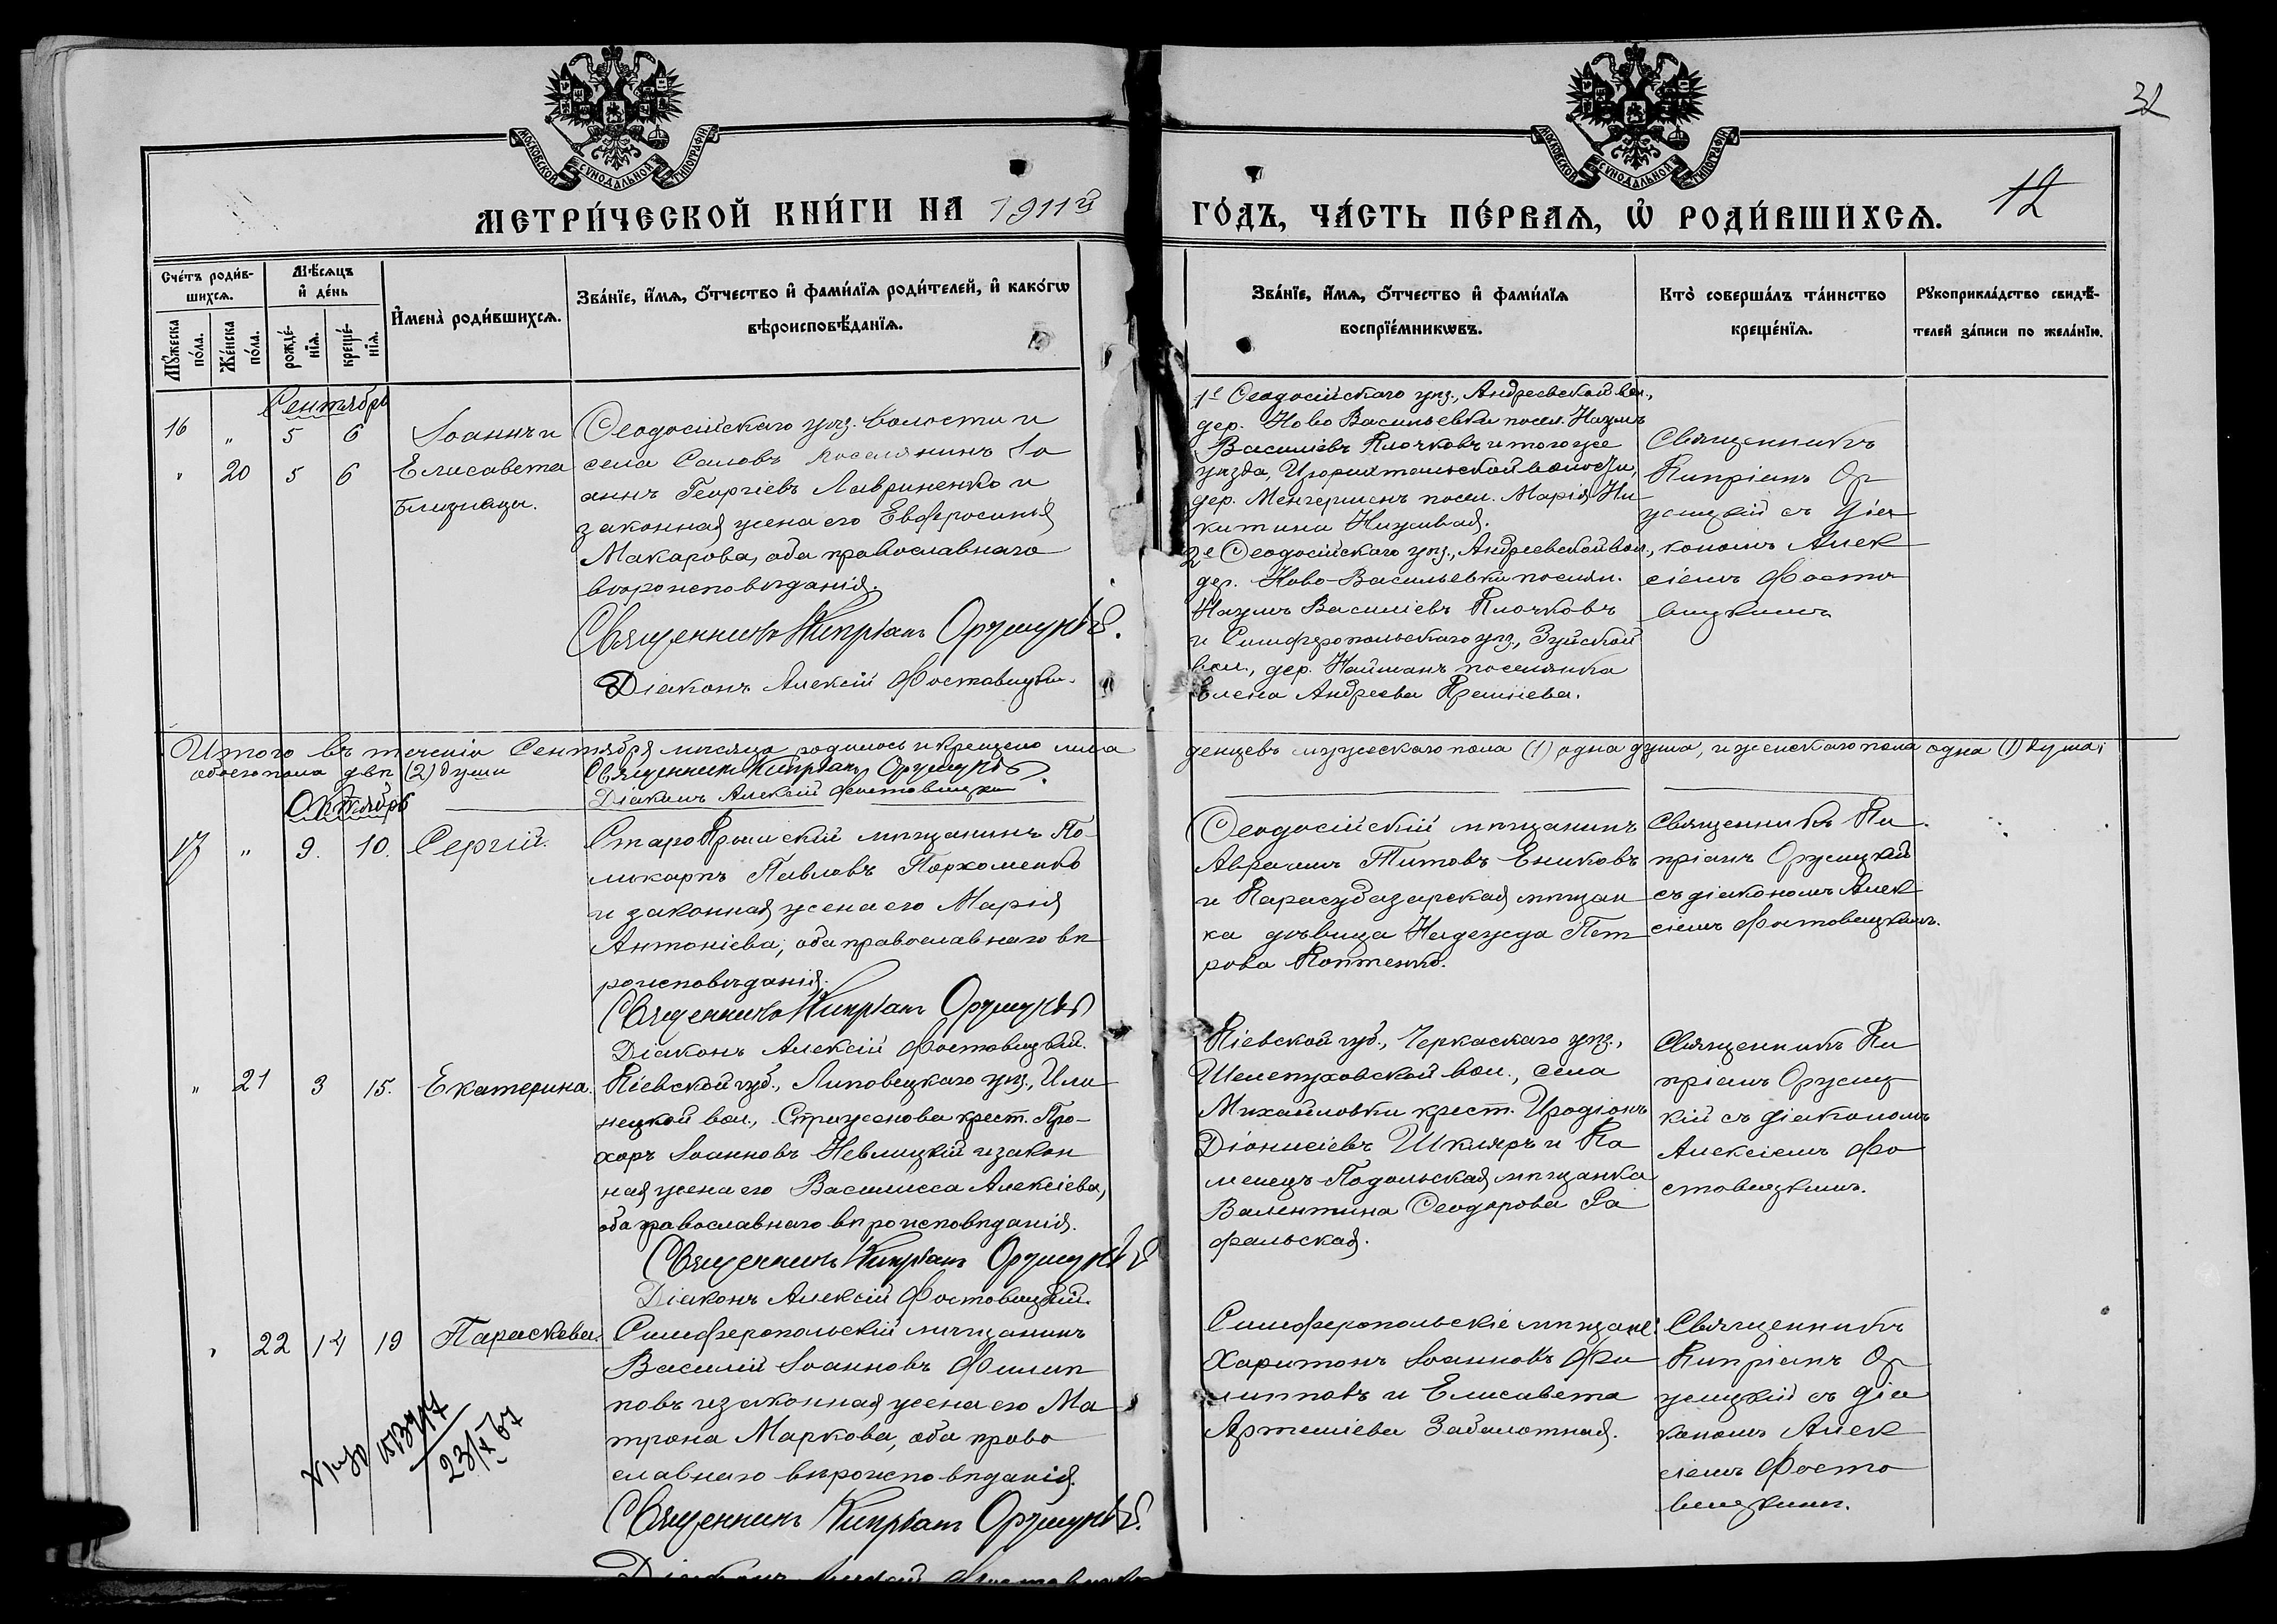 32
МОСКОВСКОЙ СѴНОДАЛЬНОЙ ТИПОГРАФІИ
МОСКОВСКОЙ СѴНОДАЛЬНОЙ ТИПОГРАФІИ
МЕТРИ́ЧЕСКОЙ КНИ́ГИ НА 1911й
ГО́ДЪ, ЧА́СТЬ ПЕ́РВАѦ, Ѡ҆ РОДИ́ВШИХСѦ.
12
Сче́тъ роди́в-
шихсѧ.
Мѣ́сѧцъ
и҆ де́нь
Мꙋ́жеска
по́ла.
Же́нска
по́ла.
рожде́-
нїѧ.
креще́-
нїѧ.
И҆мена̀ роди́вшихсѧ.
Зва́нїе, и҆́мѧ, ѻ҆́тчество и҆ фами́лїѧ роди́телей, и҆ како́гѡ
вѣроисповѣ́данїѧ.
Зва́нїе, и҆́мѧ, ѻ҆́тчество и҆ фами́лїѧ
воспрїе́мникѡвъ.
Кто̀ соверша́лъ та́инство
креще́нїѧ.
Рꙋкоприкла́дство свидѣ́-
телей за́писи по жела́нїю.
Сентябрь
16 " 5 6 Іоаннъ и
" 20 5 6 Елисавета
близнецы.
Ѳеодосійскаго уѣз. волости и
села Саловъ поселянинъ Іо
аннъ Георгіевъ Лавриненко и
законная жена его Евфросинія
Макарова, оба православнаго
вѣроисповѣданія.
Священникъ Кипріанъ Оружицкій.
Діаконъ Алексій Фостовицкій.
1е Ѳеодосійскаго уѣз., Андреевской вол.,
дер. Ново Васильевки посел. Наумъ
Василіевъ Клочковъ и того же
уѣзда, волости,
дер. посел. Марія Ни
китина
2е Ѳеодосійскаго уѣз., Андреевской вол.,
дер. Ново-Васильевки поселян.
Наумъ Василіевъ Клочковъ
и Симферопольскаго уѣз., Зуйской
вол., дер. Найманъ поселянка
Елена Андреева
Священникъ
Кипріанъ Ор
ужицкій съ діа
кономъ Алек
сіемъ Фосто
вицкимъ
Итого въ теченіи Сентября мѣсяца родилось и крещено мла
денцевъ мужескаго пола (1) одна душа, и женскаго пола одна (1) душа,
обоего пола двѣ (2) души
Священникъ Кипріанъ Оружицкій.
Діаконъ Алексій Фостовицкій
Октябрь
17 " 9. 10. Сергій.
СтароКрымскій мѣщанинъ По-
ликарпъ Павловъ Пархоменко
и законная жена его Марія
Антоніева; оба православнаго вѣ
роисповѣданія.
Священникъ Кипріанъ Оружицкій
Діаконъ Алексій Фостовицкій.
Ѳеодосійскій мѣщанинъ
Авраамъ Титовъ Ениковъ
и Карасубазарская мѣщан
ка дѣвица Надежда Пет
рова Коптенко.
Священникъ Ки
пріанъ Оружицкій
съ діакономъ Алек
сіемъ Фостовицкимъ.
" 21 3 15. Екатерина.
Кіевской губ., Липовецкаго уѣз., Или
нецкой вол., Стрижакова крест. Про-
хоръ Іоанновъ Невлицкій и закон
ная жена его Василисса Алексіева,
оба православнаго вѣроисповѣданія.
Священникъ Кипріанъ Оружицкій
Діаконъ Алексій Фостовицкій.
Кіевской губ., Черкаскаго уѣз.,
Шелепуховской вол., села
Михайловки крест. Иродіонъ
Діонисіевъ Шкляръ и Ка
менецъ-Подольская мѣщанка
Валентина Ѳеодорова Ра
фальская.
Священникъ Ки
пріанъ Оружиц
кій съ діакономъ
Алексіемъ Фо
стовицкимъ.
" 22 14 19 Параскева.
Симферопольскій мѣщанинъ
Василій Іоанновъ Филип
повъ и законная жена его Ма
трона Маркова, оба право
славнаго вѣроисповѣданія.
Священникъ Кипріанъ Оружицкій.
Діаконъ Алексій Фостовицкій
Симферопольскіе мѣщане:
Харитонъ Іоанновъ Фи
липповъ и Елисавета
Артеміева Заболотная.
Священникъ
Кипріанъ Ор
ужицкій съ діа
кономъ Алек
сіемъ Фосто
вицкимъ.
23/X 67